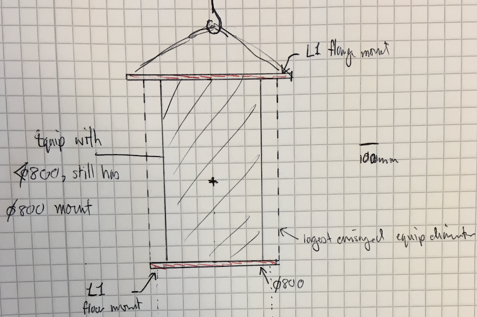 L1 flange mount
Equip with
<ϕ800, still has
ϕ800 mount
100mm
largest envisaged equip diameter
ϕ800
L1
floor mount